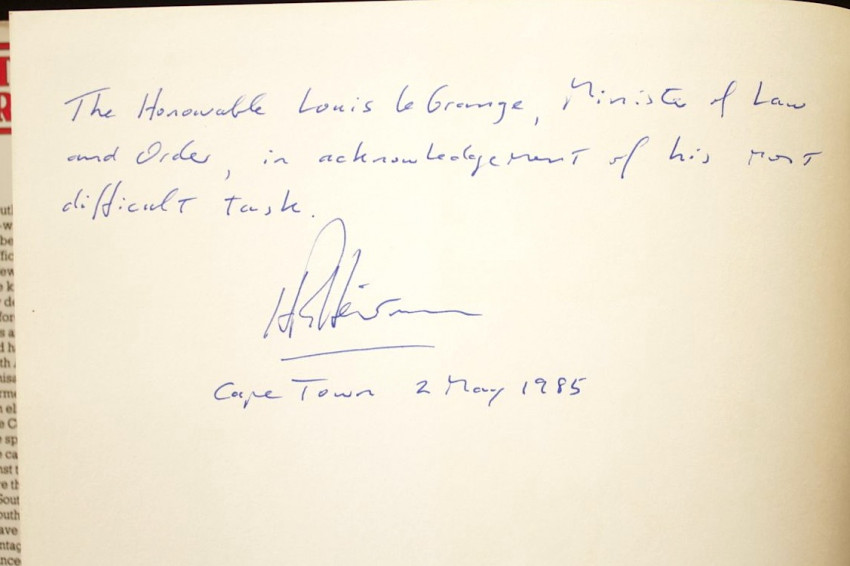 The Honourable Louis le Grange, Minister of Law
and Order, in acknowledgement of his most
difficult task.
Cape Town 2 May 1985